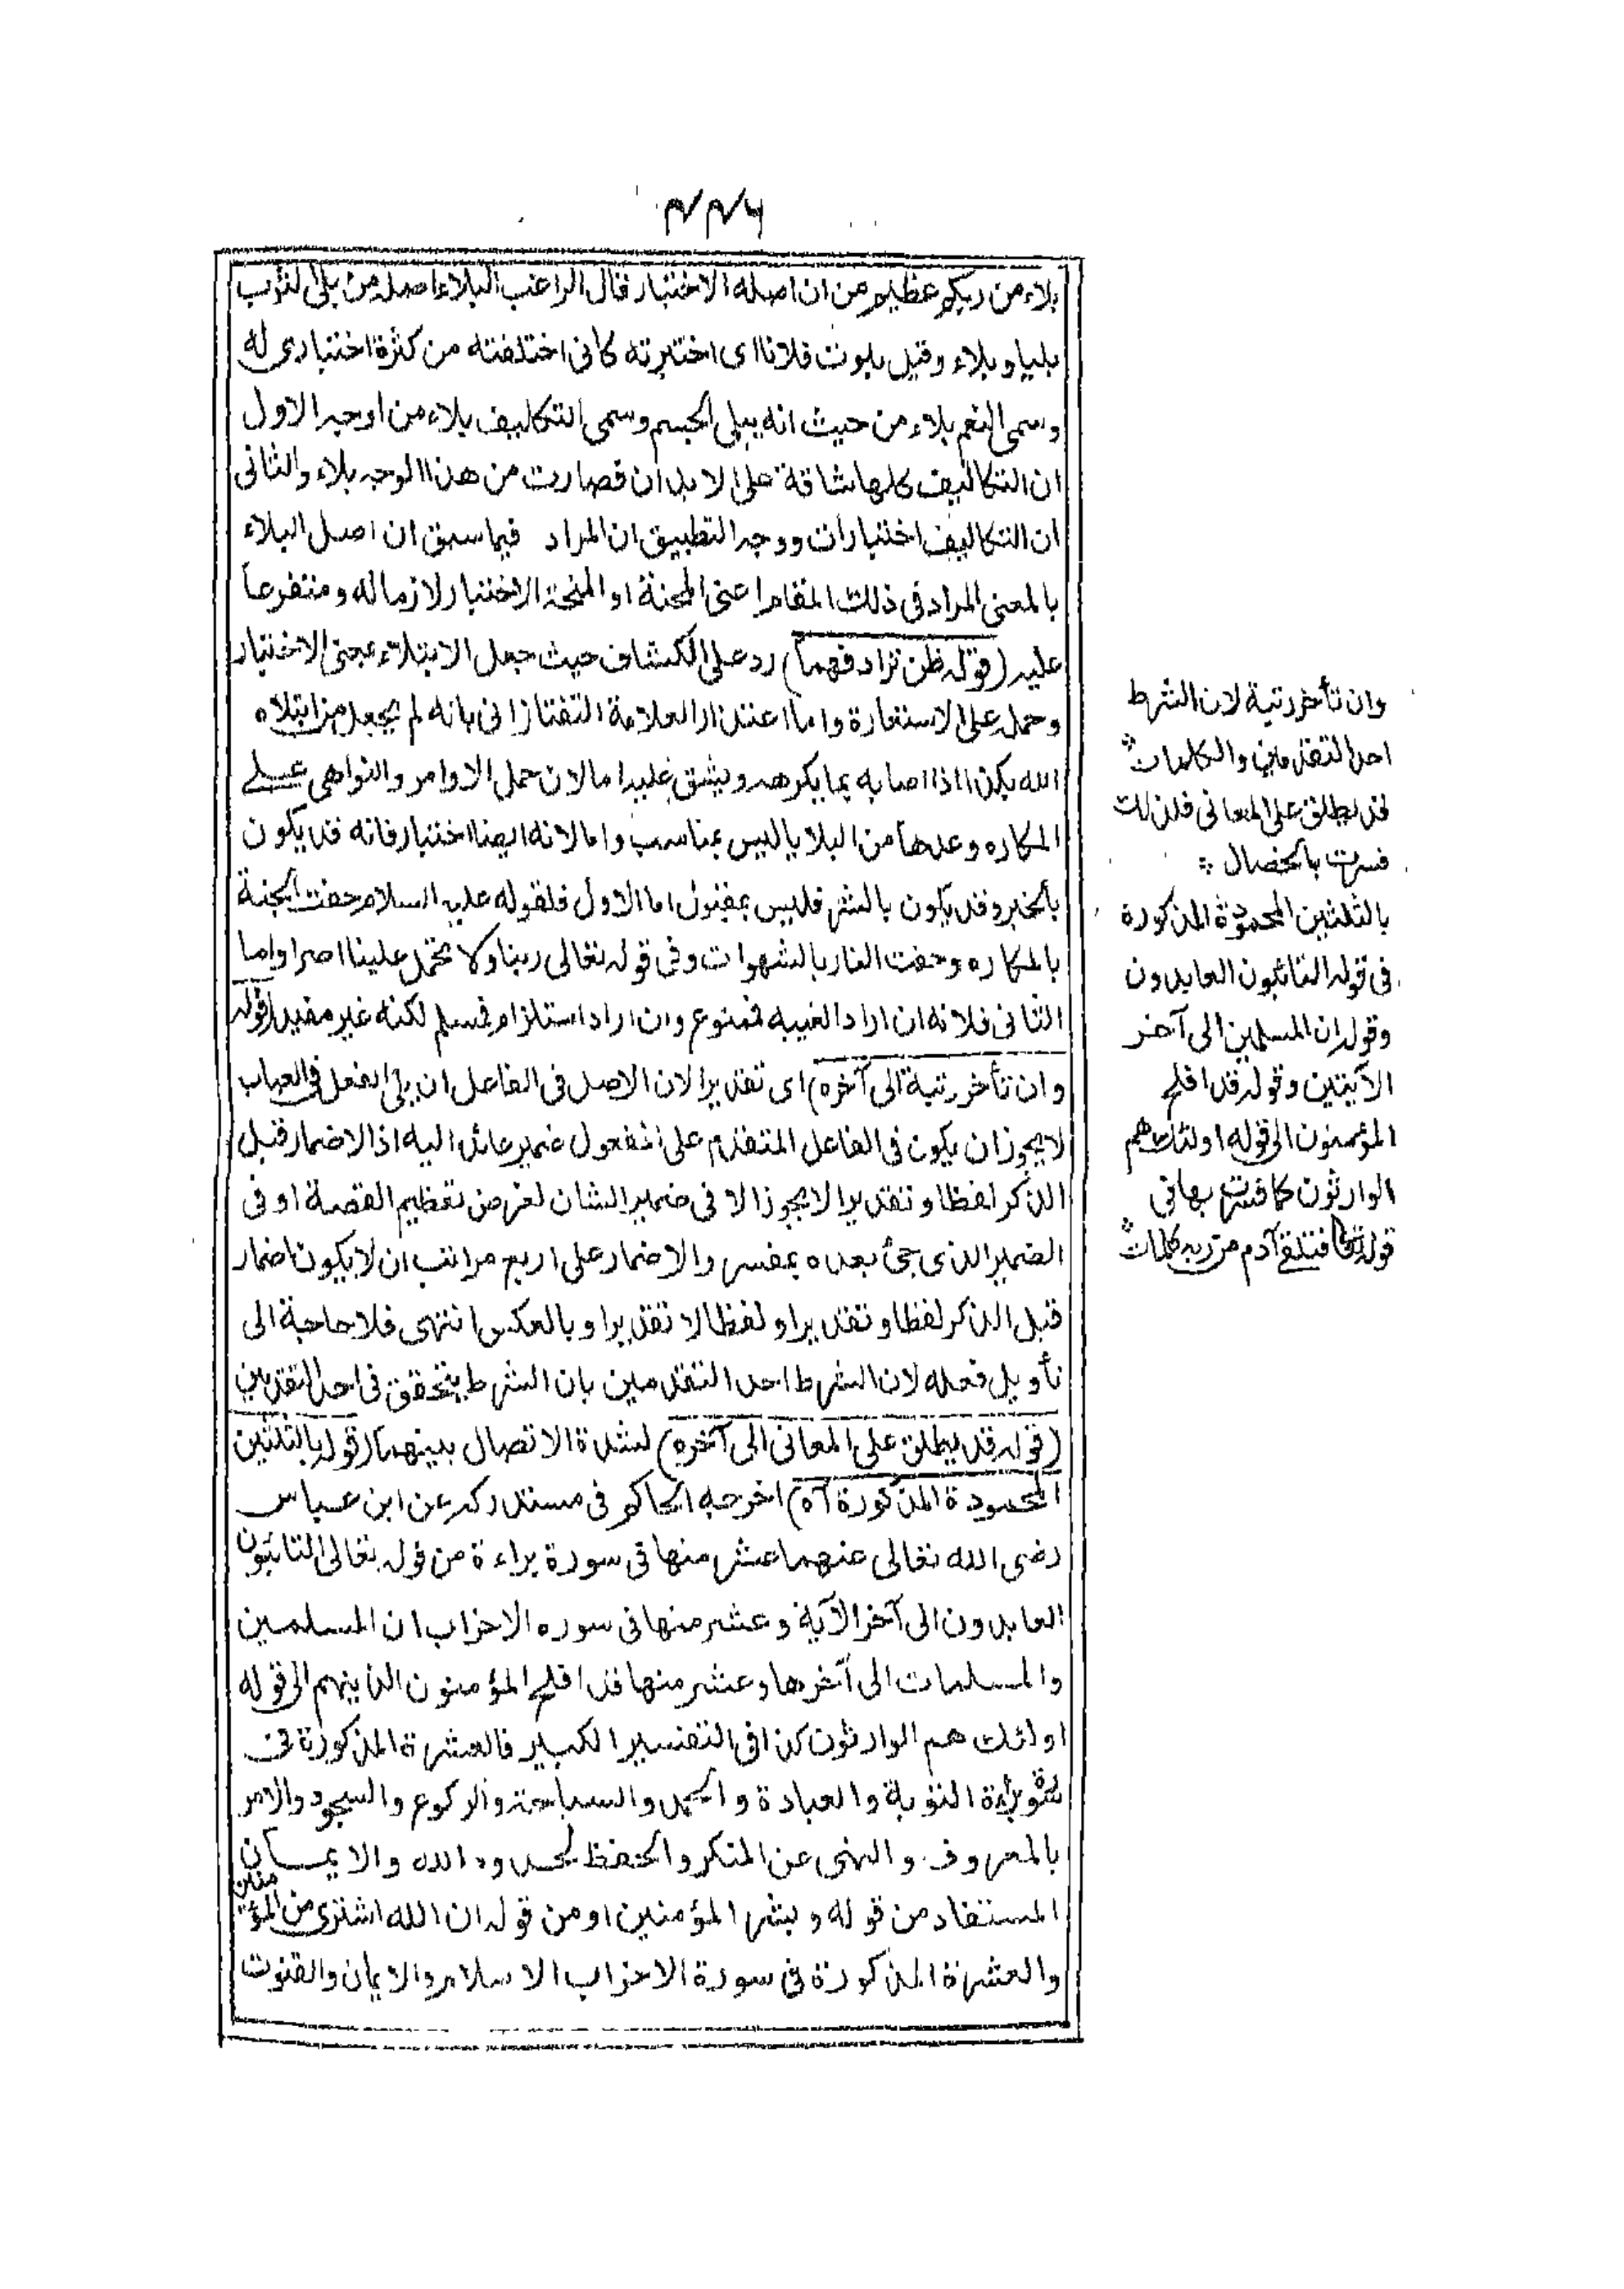 ۴۴۶
بلاء من ربكم عظيم من ان اصله الاختبار قال الراغب البلاء اصله من بلى الثوب
بليا وبلاء وقيل بلوت فلانا اى اختبرته كانى اختلفته من كثرة اختبارى له
وسمى الغم بلاء من حيث انه يبلى الجسم وسمى التكاليف بلاء من اوجه الاول
ان التكاليف كلها شاقة على الابدان فصارت من هذا الوجه بلاء والثانى
ان التكاليف اختبارات ووجه التطبيق ان المراد فيما سبق ان اصل البلاء
بالمعنى المراد فى ذلك المقام اعنى المحنة او المنحة الاختبار لازما له ومتفرعا
عليه (قوله ظن ترادفهما) رد على الكشاف حيث جعل الابتلاء بمعنى الاختبار
وحمل على الاستعارة واما اعتذار العلامة التفتازانى بانه لم يجعل من ابتلاه
الله بكذا اذا اصابه بما يكرهه ويشق عليه اما لان حمل الاوامر والنواهى على
المكاره وعدها من البلايا ليس بمناسب واما لانه ايضا اختبار فانه قد يكون
بالخير وقد يكون بالشر فليس بمقبول اما الاول فلقوله عليه السلام حفت الجنة
بالمكاره وحفت النار بالشهوات وفى قوله تعالى ربنا ولا تحمل علينا اصرا واما
الثانى فلانه ان اراد العينيه فممنوع وان اراد استلزام فمسلم لكنه غير مفيد (قوله
وان تأخر رتبة الى آخره) اى تقديرا لان الاصل فى الفاعل ان يلى الفعل فى العباب
لا يجوز ان يكون فى الفاعل المتقدم على المفعول ضمير عائد اليه اذ الاضمار قبل
الذكر لفظا وتقديرا لا يجوز الا فى ضمير الشان لغرض تعظيم القصة او فى
الضمير الذى جئ بعده بمفسر والاضمار على اربع مراتب ان لا يكون اضمار
قبل الذكر لفظا وتقديرا ولفظا لا تقديرا وبالعكس انتهى فلا حاجة الى
تأويل فعله لان الشرط احد التقدمين بان الشرط يتحقق فى احد التقديمين
(قوله قد يطلق على المعانى الى آخره) لشدة الاتصال بينهما (قوله بالثلثين
المحمودة المذكورة آه) اخرجه الحاكم فى مستدركه عن ابن عباس
رضى الله تعالى عنهما عشر منها فى سورة براءة من قوله تعالى التائبون
العابدون الى آخر الآية وعشر منها فى سوره الاحزاب ان المسلمين
والمسلمات الى آخرها وعشر منها قد افلح المؤمنون الذينهم الى قوله
اولئك هم الوارثون كذا فى التفسير الكبير فالعشرة المذكورة فى
سورة براءة التوبة والعبادة والحمد والسياحة والركوع والسجود والامر
بالمعروف والنهى عن المنكر والحفظ لحدود الله والايمان
المستفاد من قوله وبشر المؤمنين او من قوله ان الله اشترى من المؤمنين
والعشرة المذكورة فى سورة الاحزاب الاسلام والايمان والقنوت
وان تأخر رتبة لان الشرط
احد التقدمين والكلمات
قد يطلق على المعانى فلذلك
فسرت بالخصال
بالثلثين المحمودة المذكورة
فى قوله التائبون العابدون
وقوله ان المسلمين الى آخر
الآيتين وقوله قد افلح
المؤمنون الى قوله اولئك هم
الوارثون كما فسرت بها فى
قوله تعالى فتلقى آدم من ربه كلمات